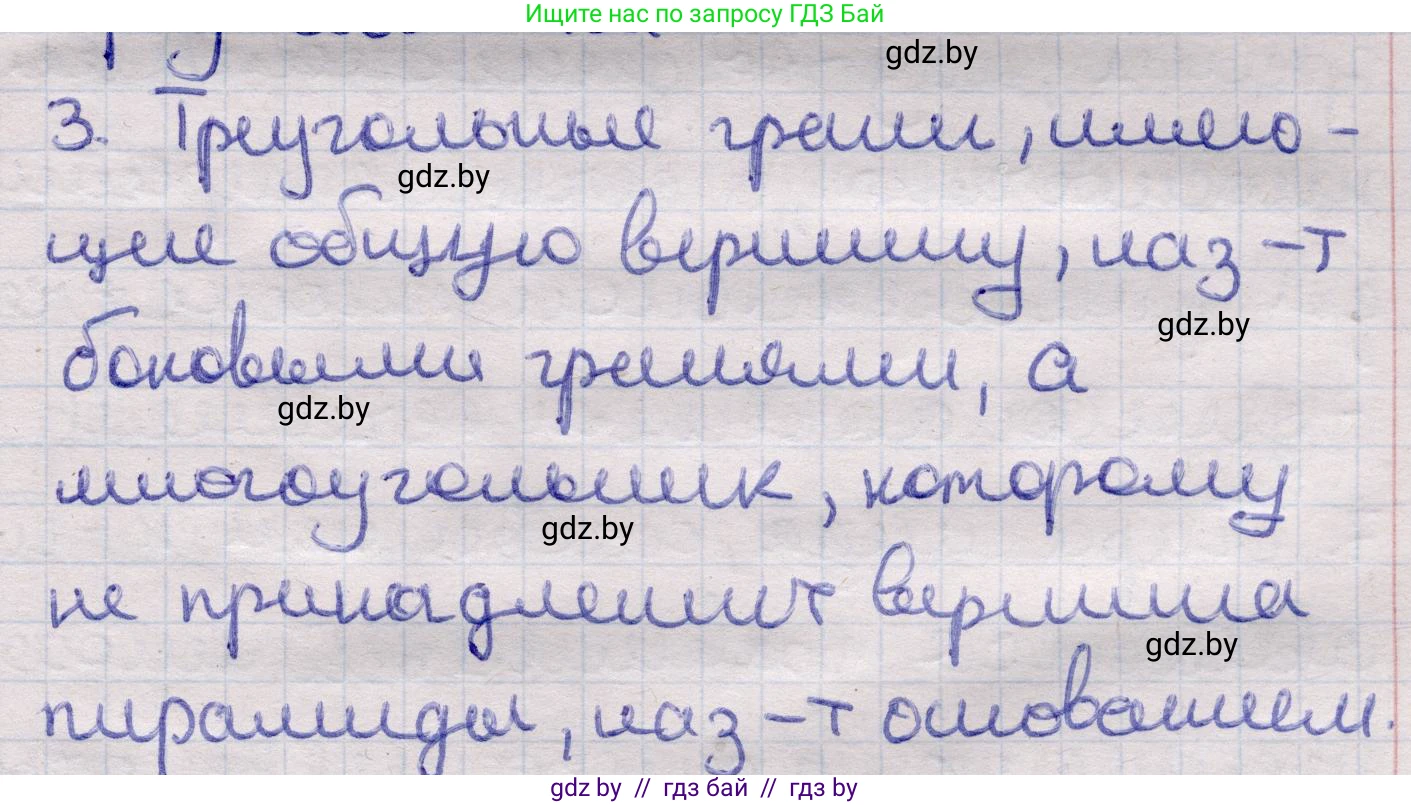 Ищите нас по запросу ГДЗ Бай
gdz.by
3. Треугольные грани, имею-
gdz.by
щие общую вершину, наз-т
gdz.by
боковыми гранями, а
gdz.by
многоугольник, которому
gdz.by
не принадлежит вершина
gdz.by
пирамиды, наз-т основанием.
gdz.by // гдз бай // гдз by